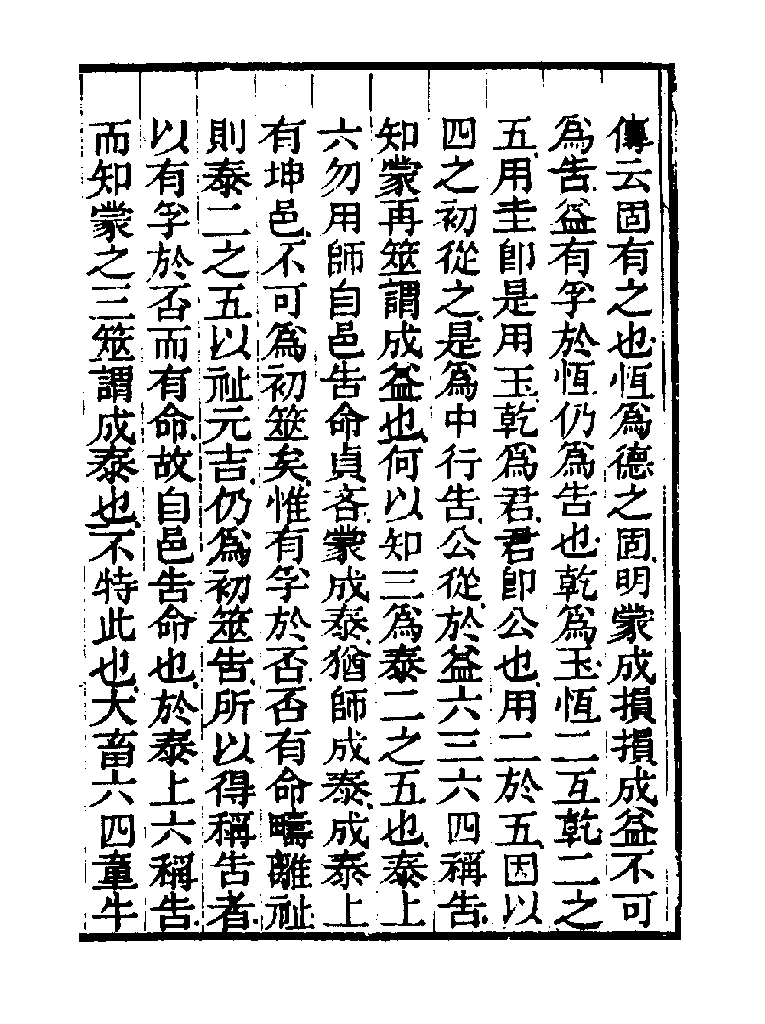 傳云固有之也恆爲德之固明蒙成損損成益不可
爲告益有孚於恆仍爲告也乾爲玉恆二互乾二之
五用圭卽是用玉乾爲君君卽公也用二於五因以
四之初從之是爲中行告公從於益六三六四稱告
知蒙再筮謂成益也何以知三爲泰二之五也泰上
六勿用師自邑告命貞吝蒙成泰猶師成泰成泰上
有坤邑不可爲初筮矣惟有孚於否否有命疇離祉
則泰二之五以祉元吉仍爲初筮告所以得稱告者
以有孚於否而有命故自邑告命也於泰上六稱告
而知蒙之三筮謂成泰也不特此也大畜六四童牛